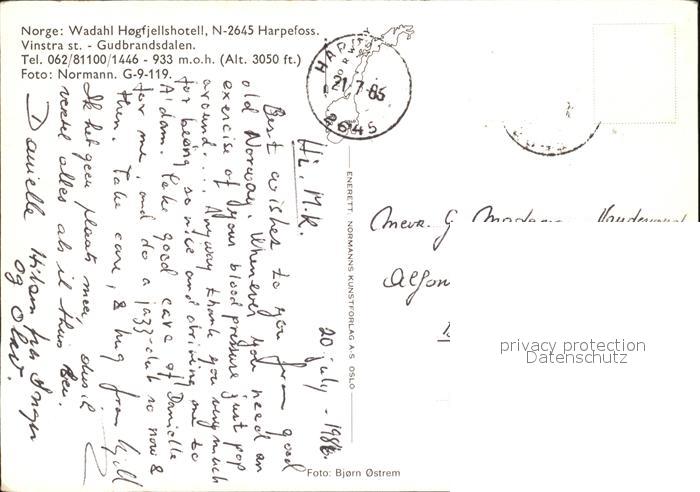 Norge: Wadahl Høgfjellshotell, N-2645 Harpefoss.
Vinstra st. - Gudbrandsdalen.
Tel. 062/81100/1446 - 933 m.o.h. (Alt. 3050 ft.)
Foto: Normann. G-9-119.
21.7.86
2645
20 july - 1986.
Hi, M.R.
Best wishes to you from good
old Norway. Whenever you need an
exercise of your blood pressure just pop
around.... Anyway thank you very much
for being so nice and driving me to
A'dam. Take good care of Danielle
for me, and do a jazz-club so now &
then. Take care, & hug from Kjell
Ik heb geen plaats meer, dus ik
vertel alles als ik thuis ben.
Danielle
Hilsen fra Inger
og Olav.
ENERETT: NORMANNS KUNSTFORLAG A-S OSLO
Mevr. G Madame
Alfon
privacy protection
Datenschutz
Foto: Bjørn Østrem